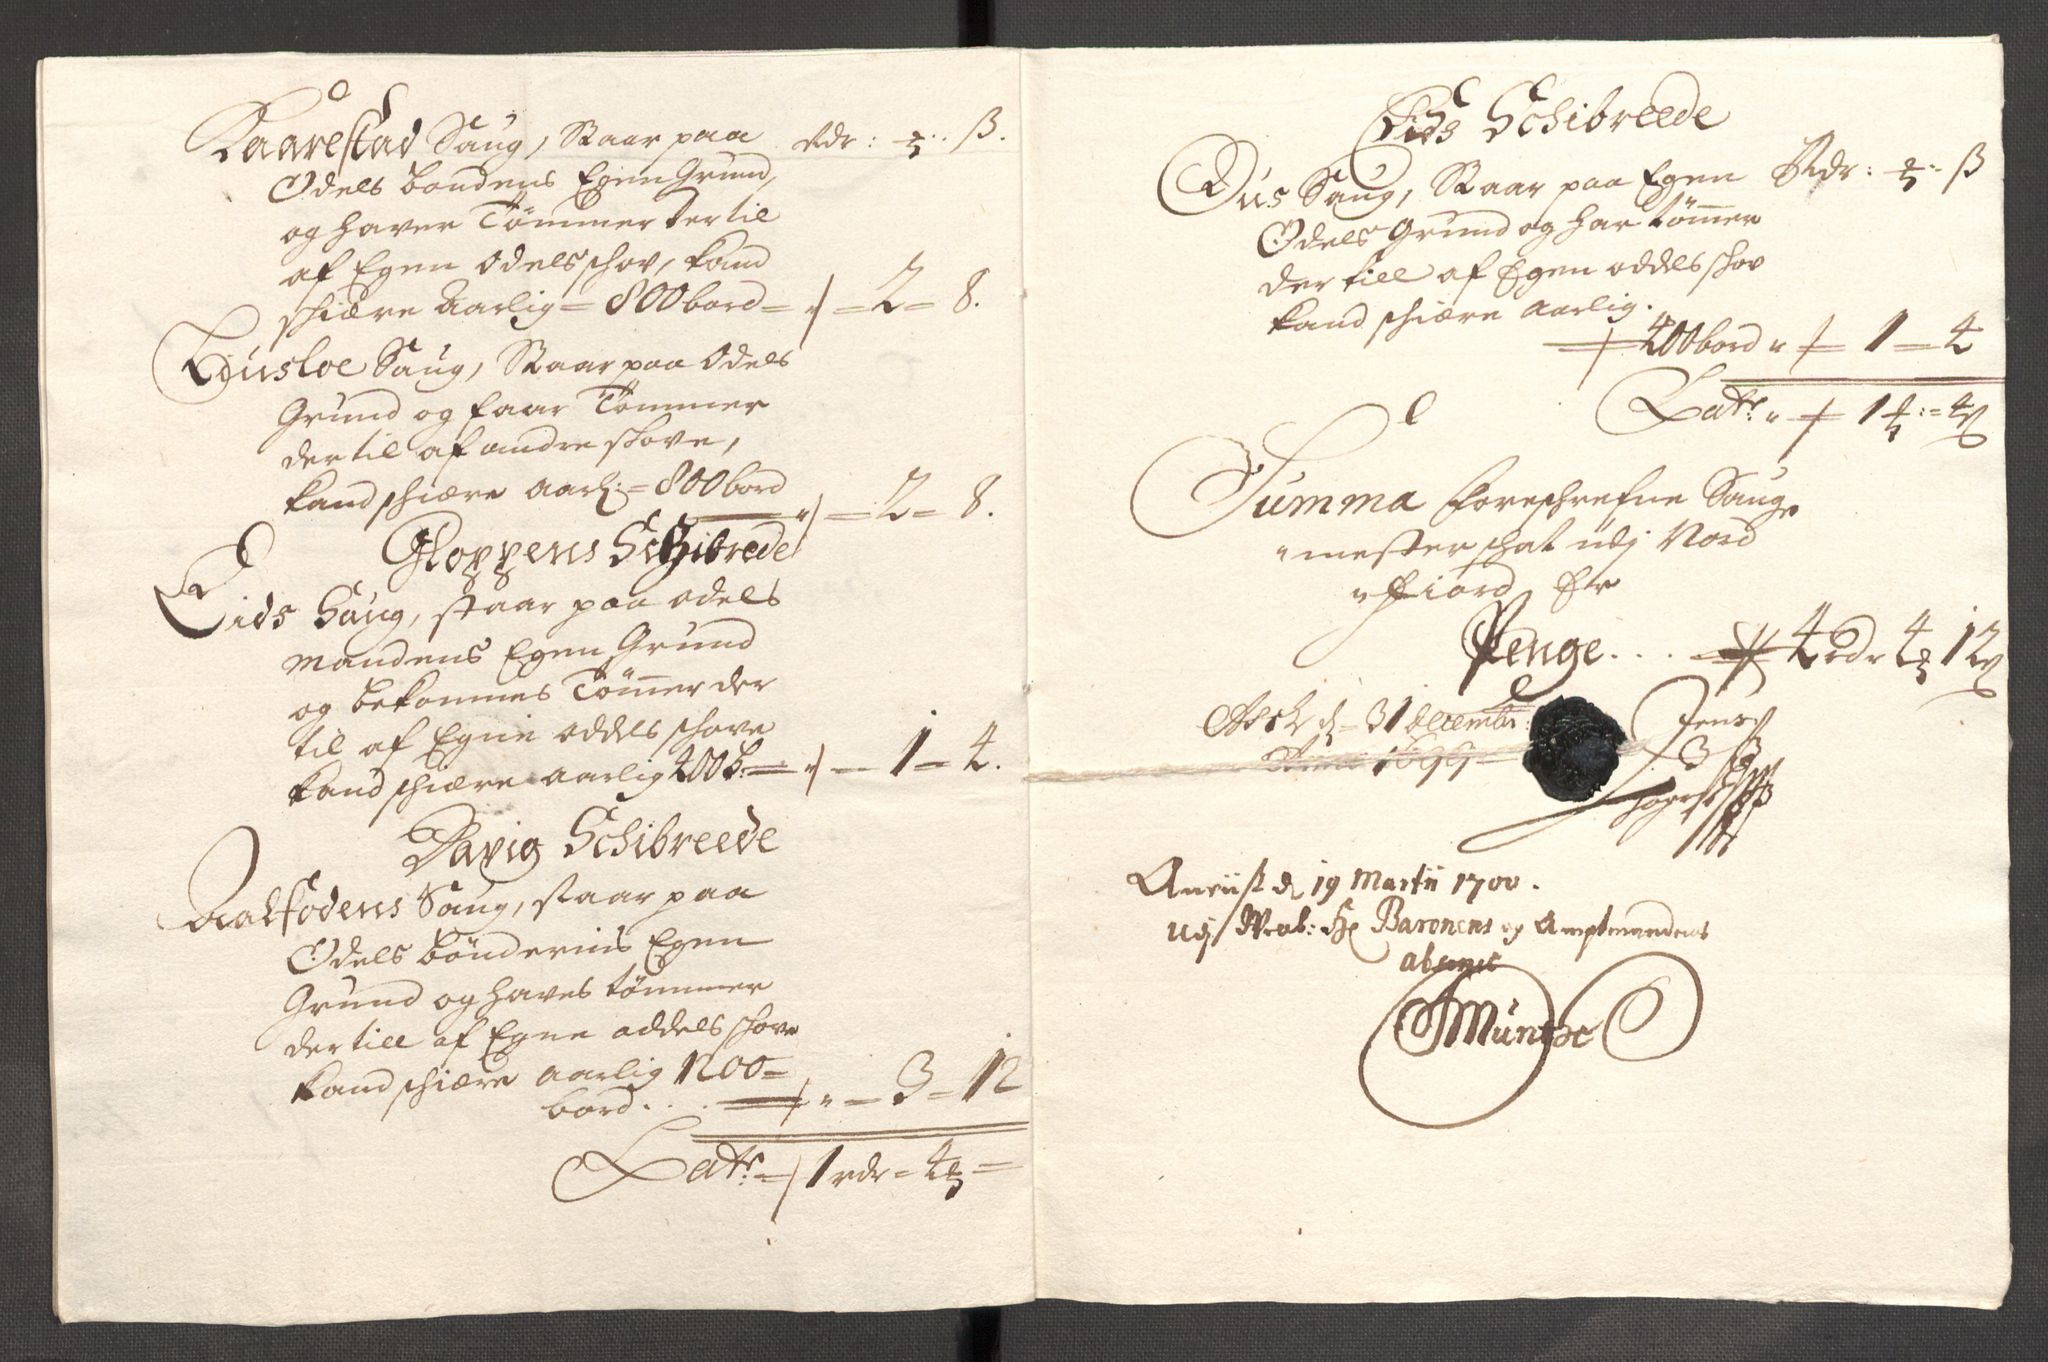 Kaarestad Saug, Staar paa Rdr: ß.
Odels bondens Egen Grund,
og haver Tømmer der til
af Egen Odels schov, kand
schiære Aarlig = 800 bord = 2 = 8.
Saug, Staar paa Odels
Grund og faar Tømmer
der til af andre schove,
kand schiære aarl: = 800 bord
2 = 8.
Gloppens Schibrede
Eids Saug, staar paa odels
mandens Egen Grund
og bekommes Tømer der
til af Egne oddels schove
kand schiære aarlig 400 b. = 1 = 4.
Davig Schibreede
Aalfodens Saug, staar paa
Odels bøndernis Egen
Grund og haves tømmer
der till af Egne oddels schove
kand schiære aarlig 1200 =
bord . . . = 3 = 12
Latr = 1 rdr =
Eids Schibreede
Saug, Staar paa Egen Rdr: ß
Odels Grund og har tømer
der till af Egen oddels schov
kand schiære aarlig.
400 bord = 1 = 4
Latr: 1 = 4
Summa Foreschrefne Saug
mester schat udj Nord
Fiord Er
Penge . . . 4 rdr 4 12
Ask d = 31 decembr:
Anno 1699
Jens
Anvist d 19 Martii 1700.
udj Welb: Hr Baronens og Amptmandens
absence
Münthe